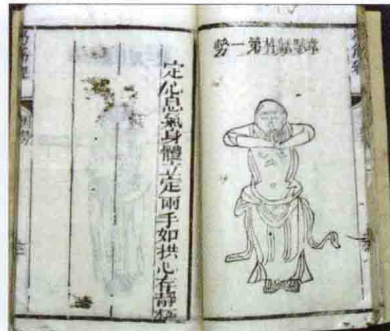 韋馱獻杵第一勢
定心息氣身體立定兩手如拱心存靜極